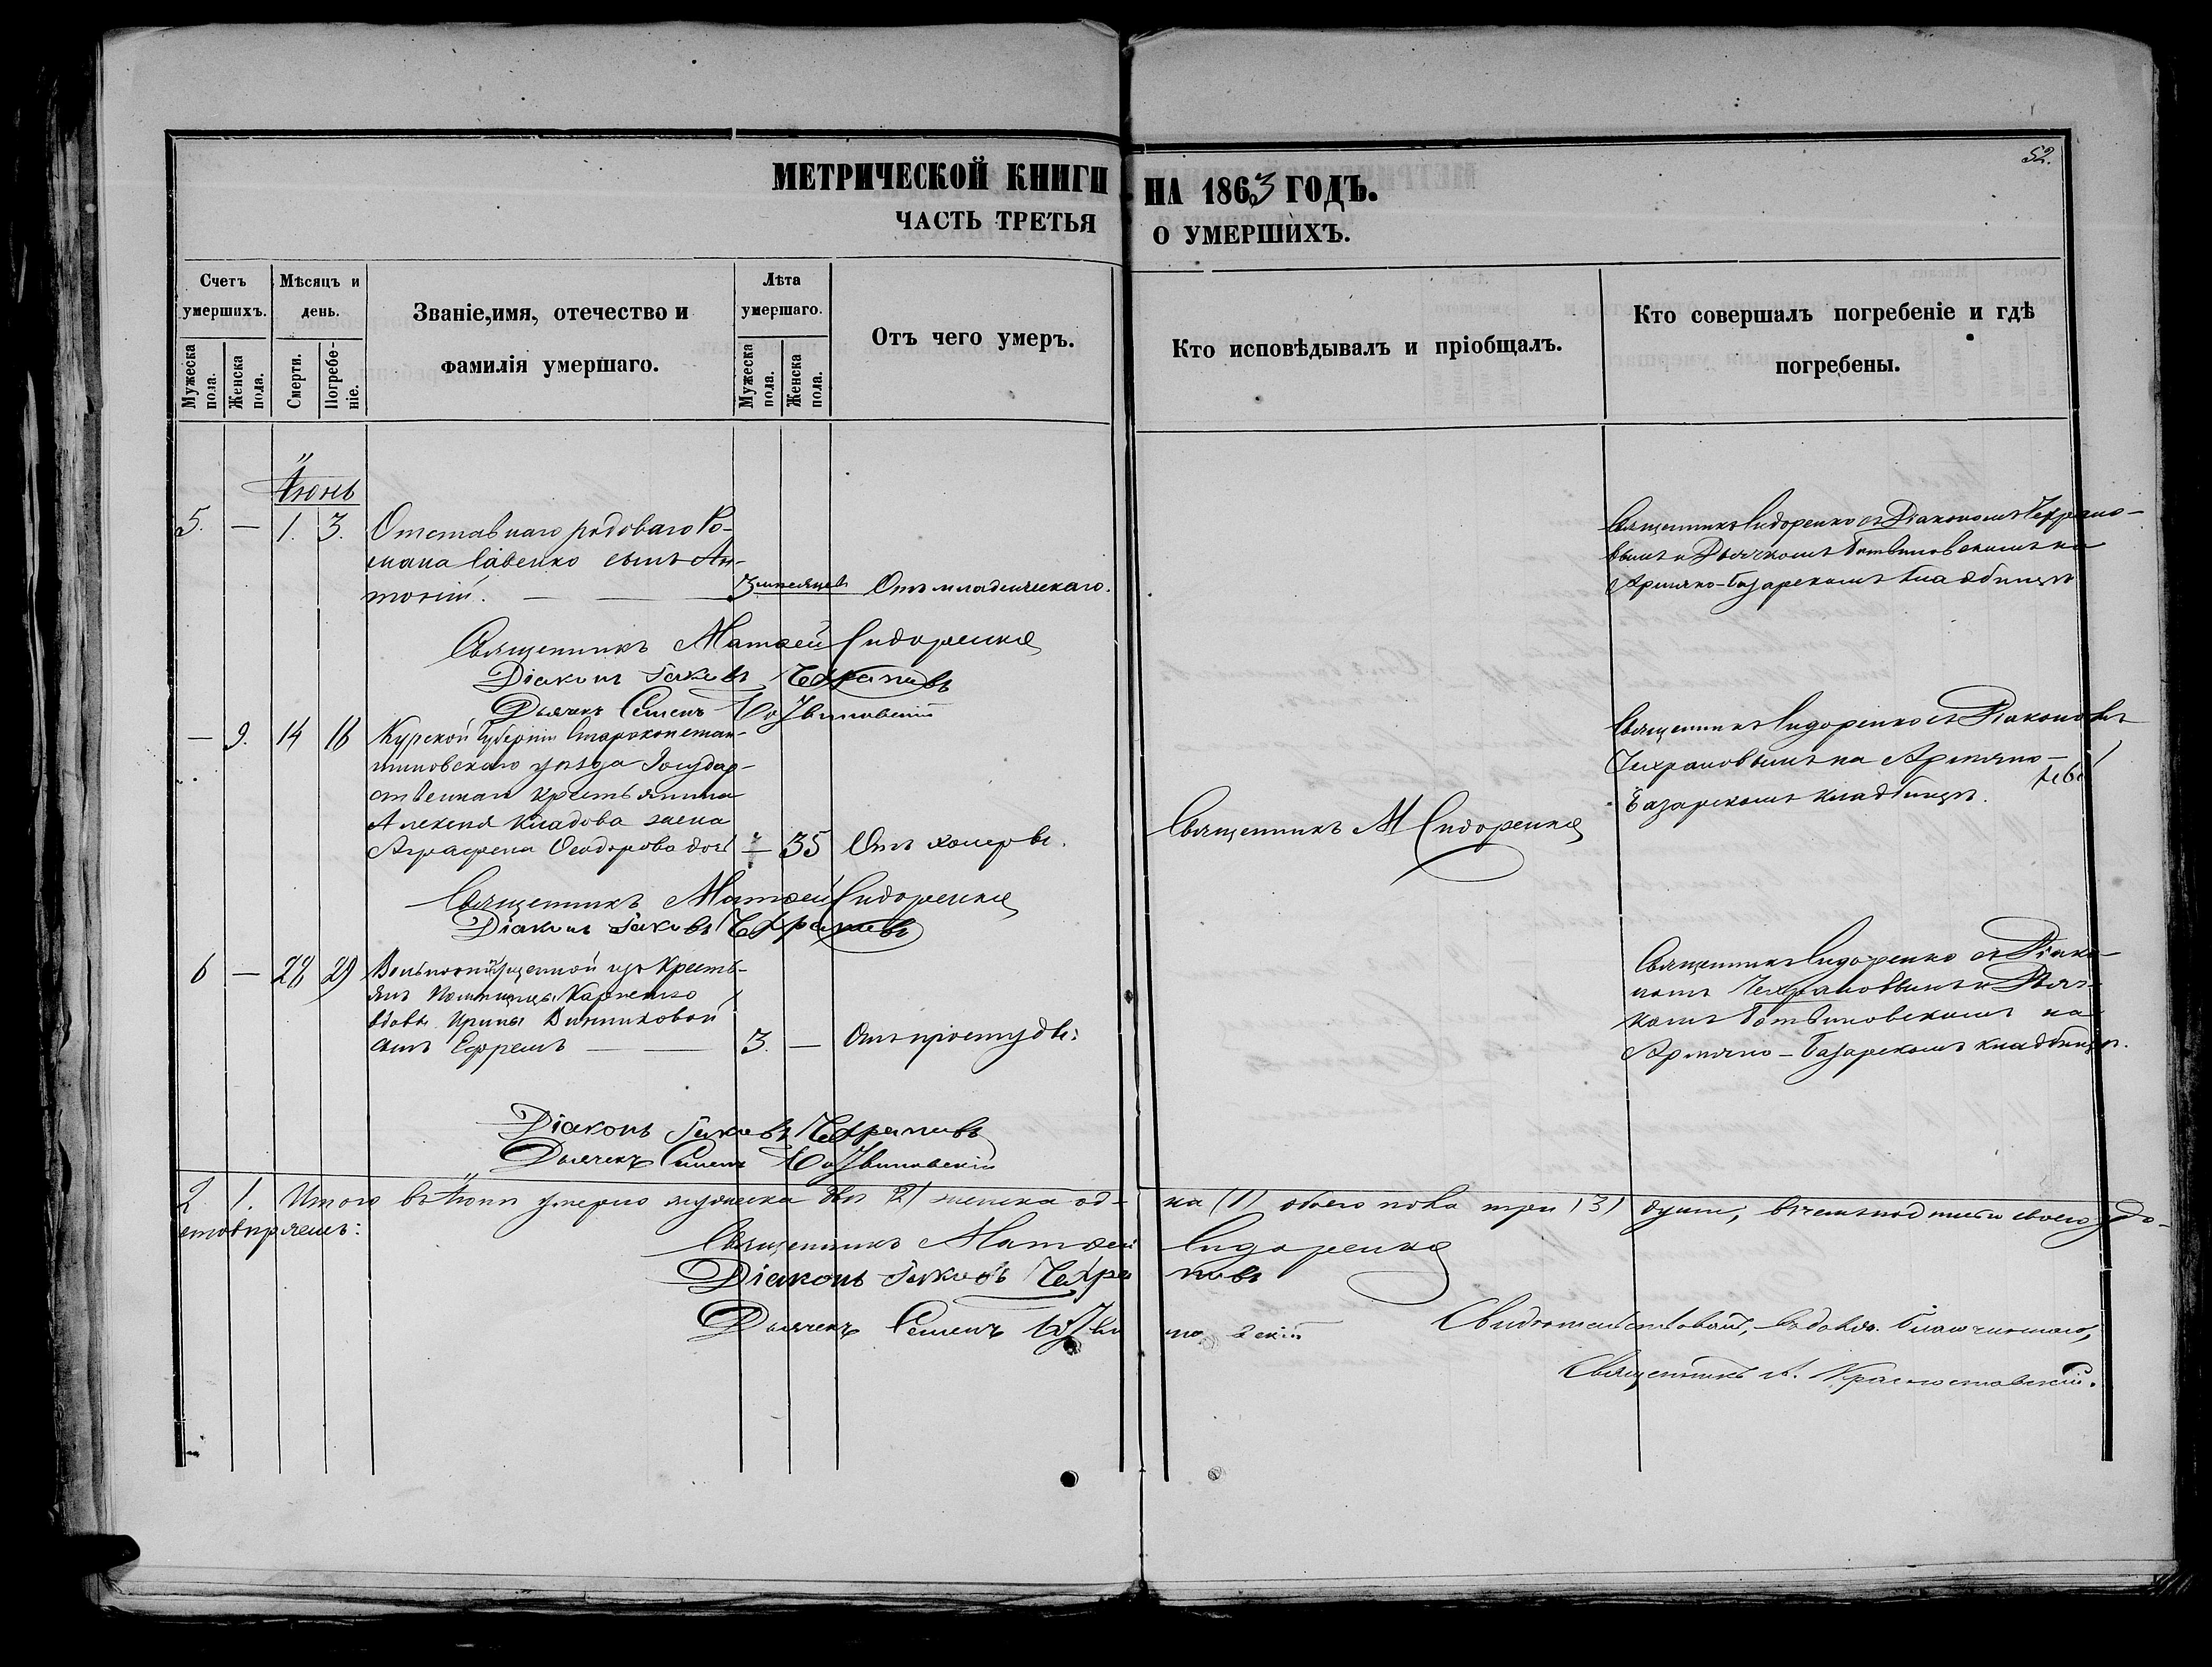 52.
МЕТРИЧЕСКОЙ КНИГИ НА 1863 ГОДЪ.
ЧАСТЬ ТРЕТЬЯ О УМЕРШИХЪ.
Счетъ умершихъ.
Мужеска пола.
Женска пола.
Мѣсяцъ и день.
Смерти.
Погребеніе.
Званіе, имя, отечество и
фамилія умершаго.
Лѣта умершаго.
Мужеска пола.
Женска пола.
Отъ чего умеръ.
Кто исповѣдывалъ и пріобщалъ.
Кто совершалъ погребеніе и гдѣ
погребены.
Іюнь
5. — 1. 3. Отставнаго рядоваго Ро-
мана Савенко сынъ Ан-
тоній. — 3 мѣсяцевъ Отъ младенческаго.
Священникъ Сидоренко съ Діакономъ Чехрано-
вымъ и Дьячкомъ Ботвиновскимъ на
Армяно-Базарскомъ кладбищѣ
Священникъ Матѳей Сидоренко
Діаконъ Іаковъ Чехрановъ
Дьячекъ Семенъ Ботвиновскій
— 9. 14 16 Курской Губерніи Староконстан-
тиновскаго уѣзда Государ-
ственнаго крестьянина
Алексѣя Кладова жена
Аграфена Ѳеодорова — 35 Отъ холеры.
Священникъ М Сидоренко
Священникъ Сидоренко съ Діакономъ
Чехрановымъ на Армяно-
Базарскомъ кладбищѣ.
Священникъ Матѳей Сидоренко
Діаконъ Іаковъ Чехрановъ
6 — 28 29 Вольноотпущенной изъ Кресть-
янъ Помѣщицы Карпенко
вдовы Ирины Винниковой
сынъ Ефремъ — 3. — Отъ простуды:
Священникъ Сидоренко съ Діако-
номъ Чехрановымъ и Дьяч-
комъ Ботвиновскимъ на
Армяно-Базарскомъ кладбищѣ.
Діаконъ Іаковъ Чехрановъ
Дьячекъ Семенъ Ботвиновскій
2 1. Итого въ Іюнѣ умерло мужеска два (2) женска од- на (1) обоего пола три (3) души, въ чемъ подписью своею удо-
стовѣряемъ:
Священникъ Матѳей Сидоренко
Діаконъ Іаковъ Чехрановъ
Дьячекъ Семенъ Ботвиновскій
Свидѣтельствовалъ, Благочиннаго,
Священникъ Красноставскій.